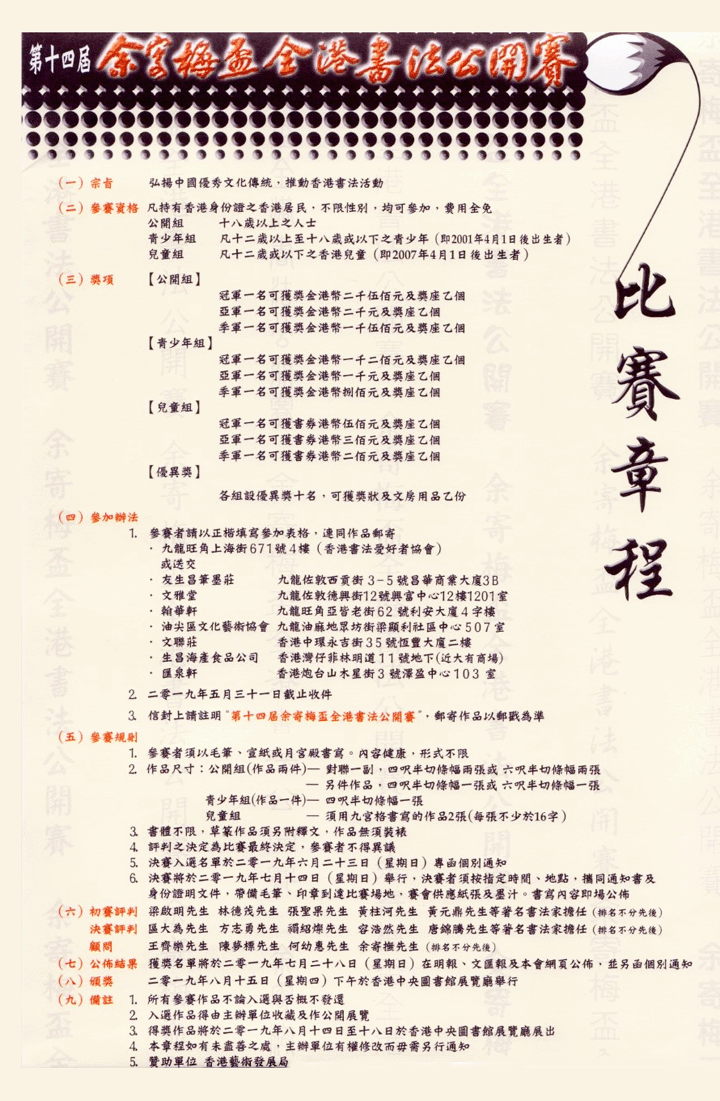 第十四届 余寄梅盃全港書法公開賽
比賽章程
(一) 宗旨 弘揚中國優秀文化傳統，推動香港書法活動
(二) 參賽資格 凡持有香港身份證之香港居民，不限性別，均可參加，費用全免
公開組 十八歲以上之人士
青少年組 凡十二歲以上至十八歲或以下之青少年 (即2001年4月1日後出生者)
兒童組 凡十二歲或以下之香港兒童 (即2007年4月1日後出生者)
(三) 獎項 【公開組】
冠軍一名可獲獎金港幣二千伍佰元及獎座乙個
亞軍一名可獲獎金港幣二千元及獎座乙個
季軍一名可獲獎金港幣一千伍佰元及獎座乙個
【青少年組】
冠軍一名可獲獎金港幣一千二佰元及獎座乙個
亞軍一名可獲獎金港幣一千元及獎座乙個
季軍一名可獲獎金港幣捌佰元及獎座乙個
【兒童組】
冠軍一名可獲書券港幣伍佰元及獎座乙個
亞軍一名可獲書券港幣三佰元及獎座乙個
季軍一名可獲書券港幣二佰元及獎座乙個
【優異獎】
各組設優異獎十名，可獲獎狀及文房用品乙份
(四) 參加辦法
1. 參賽者請以正楷填寫參加表格，連同作品郵寄
· 九龍旺角上海街671號4樓 (香港書法愛好者協會)
或送交
· 友生昌筆墨莊 九龍佐敦西貢街3-5號昌華商業大廈3B
· 文雅堂 九龍佐敦德興街12號興富中心12樓1201室
· 翰華軒 九龍旺角亞皆老街62號利安大廈4字樓
· 油尖區文化藝術協會 九龍油麻地眾坊街梁顯利社區中心507室
· 文聯莊 香港中環永吉街35號恆豐大廈二樓
· 生昌海產食品公司 香港灣仔菲林明道11號地下(近大有商場)
· 匯泉軒 香港炮台山木星街3號澤盈中心103室
2. 二零一九年五月三十一日截止收件
3. 信封上請註明"第十四届余寄梅盃全港書法公開賽"，郵寄作品以郵戳為準
(五) 參賽規則
1. 參賽者須以毛筆、宣紙或月宮殿書寫。內容健康，形式不限
2. 作品尺寸：公開組(作品兩件)— 對聯一副，四呎半切條幅兩張或 六呎半切條幅兩張
— 另件作品，四呎半切條幅一張或 六呎半切條幅一張
青少年組(作品一件)— 四呎半切條幅一張
兒童組 — 須用九宮格書寫的作品2張(每張不少於16字)
3. 書體不限，草篆作品須另附釋文，作品無須裝裱
4. 評判之決定為比賽最終決定，參賽者不得異議
5. 決賽入選名單於二零一九年六月二十三日 (星期日) 專函個別通知
6. 決賽將於二零一九年七月十四日 (星期日) 舉行，決賽者須按指定時間、地點，攜同通知書及
身份證明文件，帶備毛筆、印章到達比賽場地，賽會供應紙張及墨汁。書寫內容即場公佈
(六) 初賽評判 梁啟明先生 林德茂先生 張聖果先生 黃柱河先生 黃元鼎先生等著名書法家擔任 (排名不分先後)
決賽評判 區大為先生 方志勇先生 禤紹燦先生 容浩然先生 唐錦騰先生等著名書法家擔任 (排名不分先後)
顧問 王齊樂先生 陳夢標先生 何幼惠先生 余寄撫先生 (排名不分先後)
(七) 公佈結果 獲獎名單將於二零一九年七月二十八日 (星期日) 在明報、文匯報及本會網頁公佈，並另函個別通知
(八) 頒獎 二零一九年八月十五日 (星期四) 下午於香港中央圖書館展覽廳舉行
(九) 備註 1. 所有參賽作品不論入選與否概不發還
2. 入選作品得由主辦單位收藏及作公開展覽
3. 得獎作品將於二零一九年八月十四日至十八日於香港中央圖書館展覽廳展出
4. 本章程如有未盡善之處，主辦單位有權修改而毋需另行通知
5. 贊助單位 香港藝術發展局